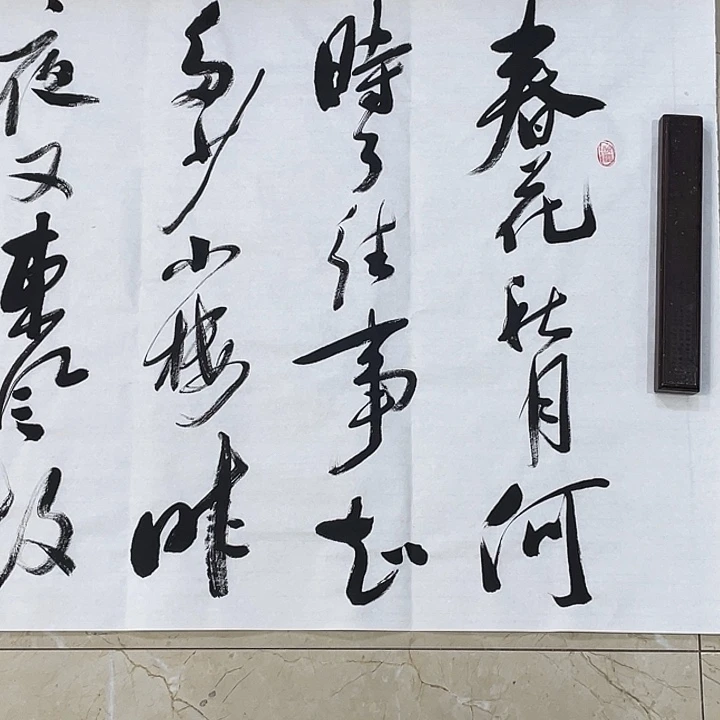 春花秋月何
時了往事知
多少小樓昨
夜又東风故